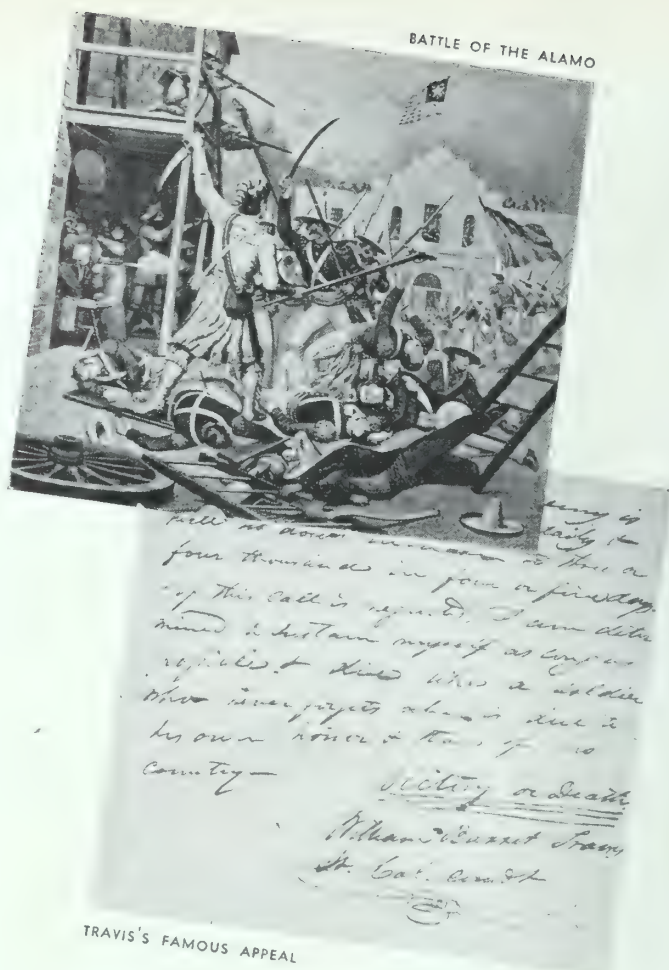 BATTLE OF THE ALAMO
daily &
will no doubt increase to three or
four thousand in four or five days.
If this call is neglected, I am deter
mined to sustain myself as long as
possible & die like a soldier
who never forgets what is due to
his own honor & that of his
country—
Victory or Death
William Barret Travis
Lt. Col. comdt
TRAVIS'S FAMOUS APPEAL